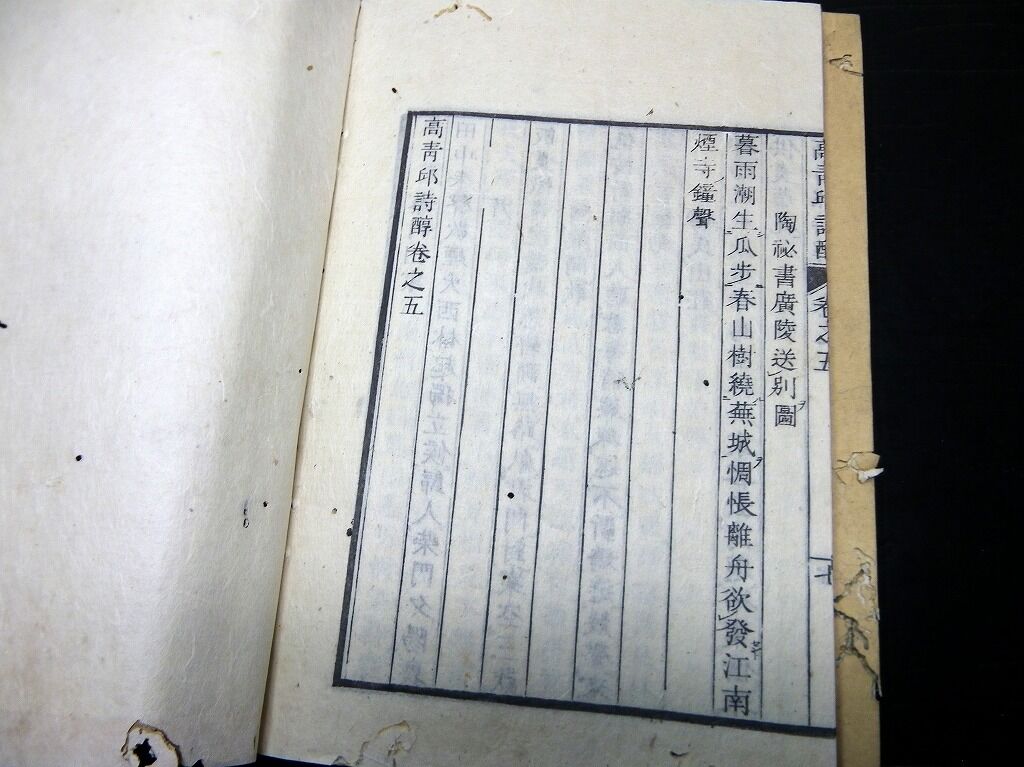 高青邱詩醇
卷之五
陶祕書廣陵送別圖
暮雨潮生瓜步春山樹繞蕪城惆悵離舟欲發江南
煙寺鐘聲
高青邱詩醇卷之五